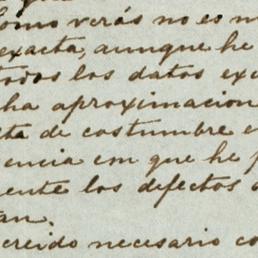 Como verás no es m
exacta, aunque he
todos los datos exa
ha aproximacion
ta de costumbre e
encia con que he p
ente los defectos
an.
creido necesario co